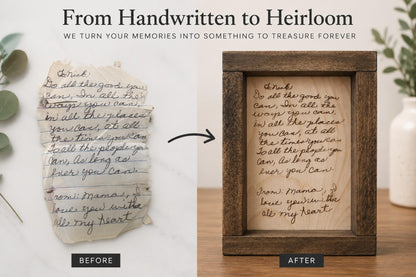 From Handwritten to Heirloom
WE TURN YOUR MEMORIES INTO SOMETHING TO TREASURE FOREVER
To Nick
Do all the good you
can, In all the
ways you can,
in all the places
you can, at all
the times you can
To all the people you
Can, As long as
ever you can
From: Mama, I
love you with
all my heart
BEFORE
To Nick
Do all the good you
can, In all the
ways you can
in all the places
you can, at all
the times you can
To all the people you
Can, As long as
ever you can
From: Mama, I
love you with
all my heart
AFTER